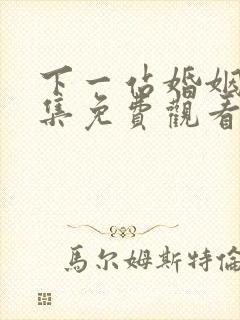 下一站婚姻
集免費觀看
馬尔姆斯特倫